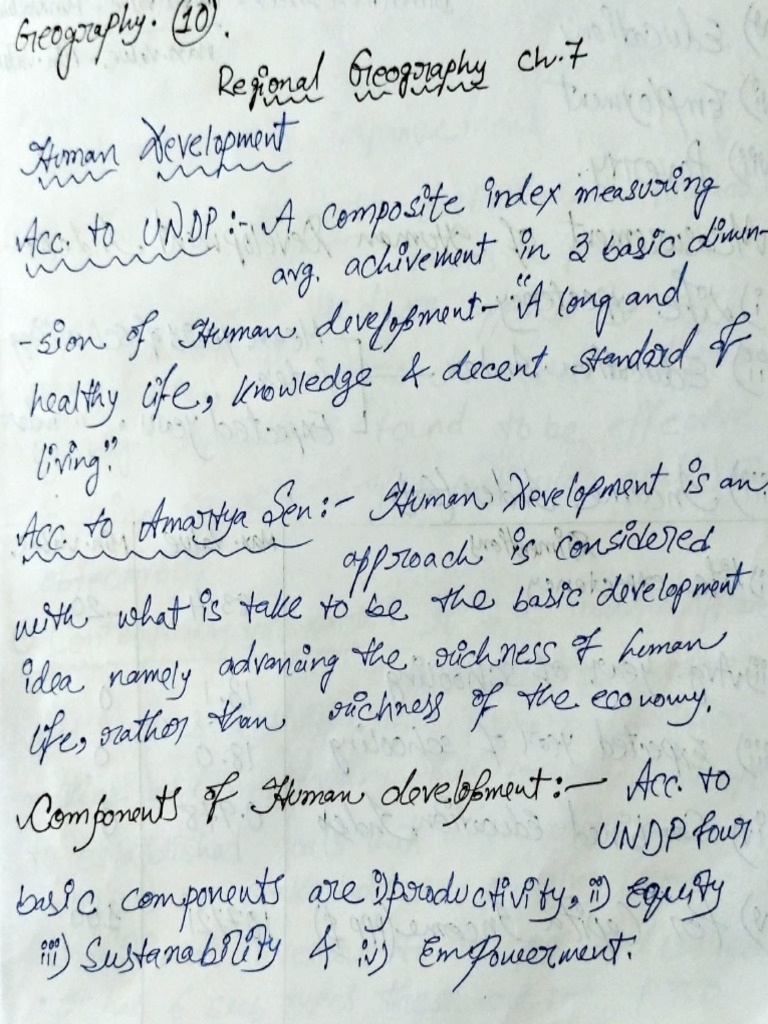 Geography. (10).
Regional Geography Ch.7
Human Development
Acc. to UNDP:- A composite index measuring
avg. achivement in 3 basic dimen-
-sion of Human development- "A long and
healthy life, knowledge & decent standard of
living".
Acc. to Amartya Sen:- Human Development is an
approach is considered
with what is take to be the basic development
idea namely advancing the richness of human
life, rather than richness of the economy.
Components of Human development:- Acc. to
UNDP four
basic components are i) productivity, ii) Equity
iii) Sustanability & iv) Empowerment.